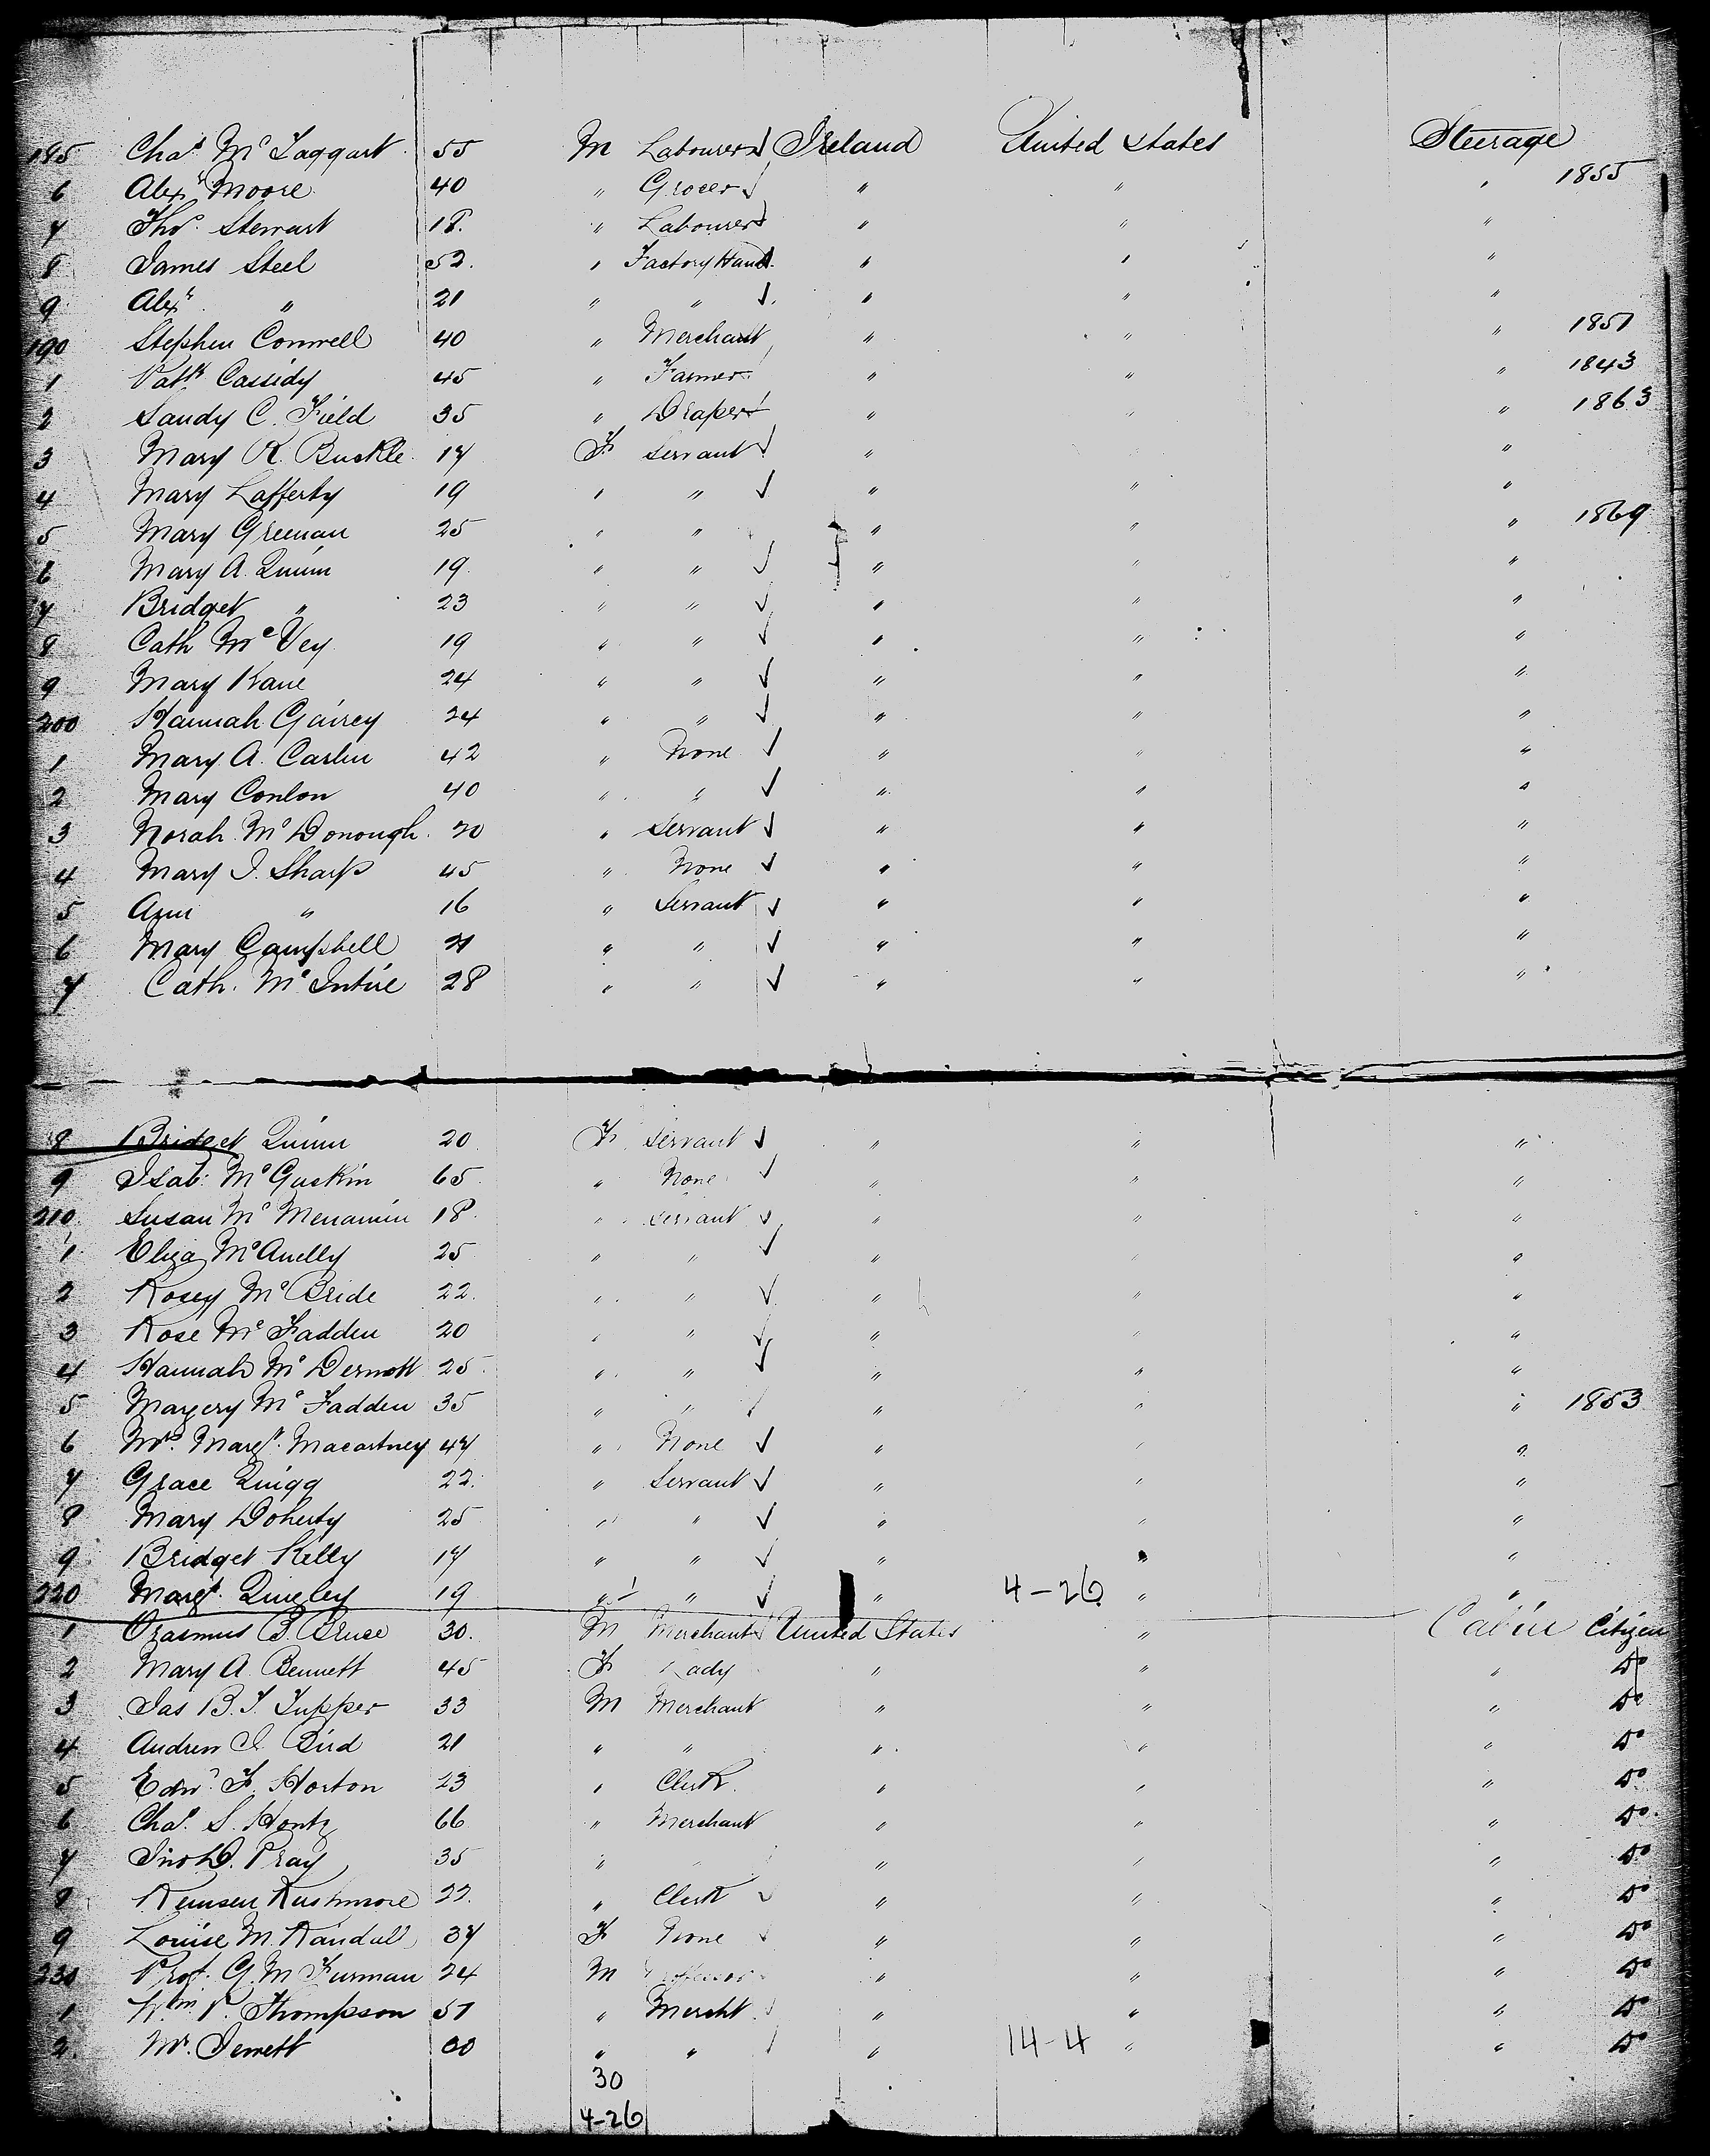 185 Chas Mc Taggart 55 M Labourer Ireland United States Steerage
6 Alexr Moore 40 " Grocer " " " 1855
7 Thos. Stewart 18. " Labourer " " "
8 James Steel 52. " Factory Hand " " "
9 Alexr " 21 " " " " "
190 Stephen Conwell 40 " Merchant " " " 1851
1 Patk Cassidy 45 " Farmer " " " 1843
2 Sandy C. Field 35 " Draper " " " 1863
3 Mary R. Buckle 17 F Servant " "
4 Mary Lafferty 19 " " " " "
5 Mary Greenan 25 " " " " " 1869
6 Mary A. Quinn 19 " " " " "
7 Bridget " 23 " " " " "
8 Cath Mc Vey 19 " " " " "
9 Mary Kane 24 " " " " "
200 Hannah Gairey 24 " " " " "
1 Mary A. Carlin 42 " None " " "
2 Mary Conlon 40 " " " " "
3 Norah Mc Donough. 20 " Servant " " "
4 Mary J. Sharp 45 " None " " "
5 Ann " 16 " Servant " " "
6 Mary Campbell 21 " " " " "
7 Cath. Mc Intire 28 " " " " "
8 Bridget Quinn 20 F Servant " " "
9 Isab: Mc Guckin 65 " None " " "
210. Susan Mc Menamin 18 " Servant " " "
1 Eliza Mc Anelly 25 " " " " "
2 Rosey Mc Bride 22. " " " " "
3 Rose Mc Fadden 20 " " " " "
4 Hannah Mc Dermott 25 " " " " "
5 Margery Mc Fadden 35 " " " " " 1853
6 Mrs. Margt. Macartney 47 " None " " "
7 Grace Quigg 22. " Servant " " "
8 Mary Doherty 25 " " " " "
9 Bridget Kelly 17 " " " " "
220 Margt. Quigley 19 " " " 4-26 " "
1 Erasmus B. Bruce 30. M Merchant United States " Cabin Citizen
2 Mary A. Bennett 45 F Lady " " " Do
3 Jas B. T. Tupper 33 M Merchant " " " Do
4 Andrew J. Bird 21 " " " " " Do
5 Edwd. F. Horton 23 " Clerk. " " " Do
6 Chas. S. Hontz 66 " Merchant " " " Do
7 Jno D. Pray 35 " " " " " Do
8 Remsen Rushmore 22. " Clerk " " " Do
9 Louise M. Randall 37 F None " " " Do
230 Prof. G. M Furman 24 M Professor " " " Do
1 Wm P. Thompson 51 " Mercht " " " Do
2. Mr. Jewett 30 " " " 14-4 " " Do
30
4-26